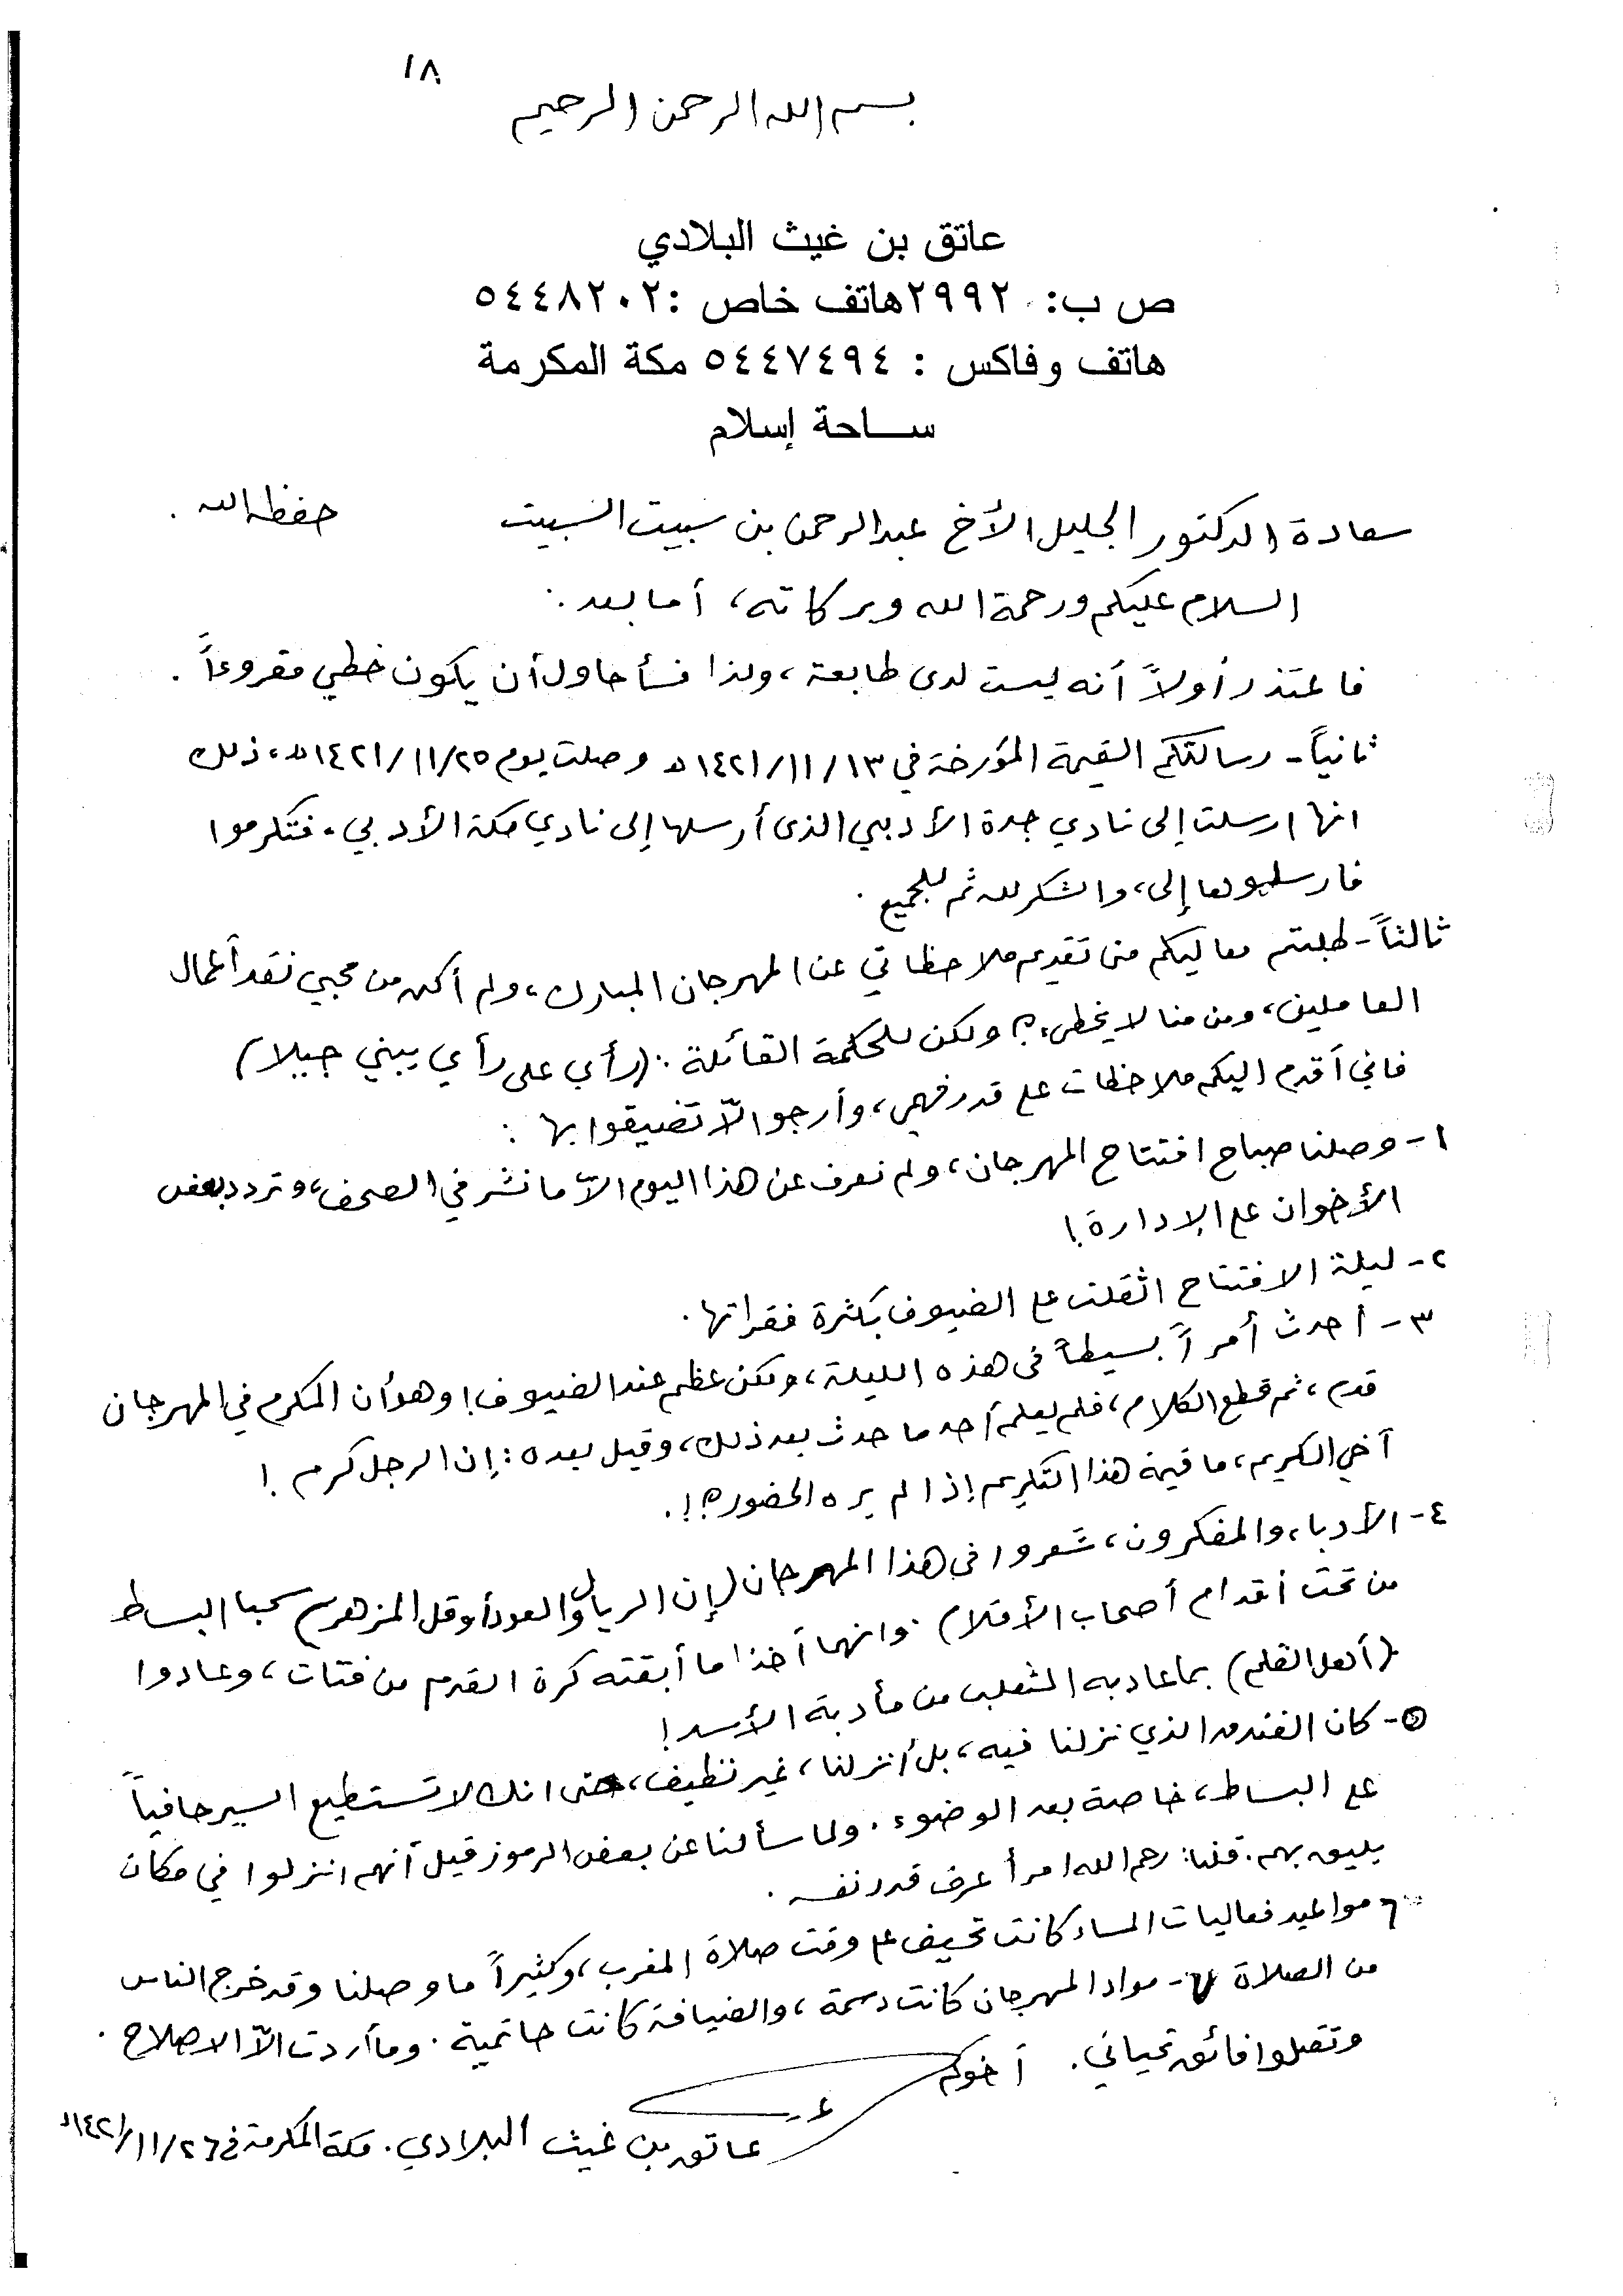 ١٨
بسم الله الرحمن الرحيم
عاتق بن غيث البلادي
ص ب: ٢٩٩٢ هاتف خاص :٥٤٤٨٢٠٢
هاتف وفاكس : ٥٤٤٧٤٩٤ مكة المكرمة
ساحة إسلام
سعادة الدكتور الجليل الأخ عبدالرحمن بن سبيت السبيت حفظه الله .
السلام عليكم ورحمة الله وبركاته، أما بعد :
فاعتذر أولاً أنه ليست لدى طابعة، ولذا فسأحاول أن يكون خطي مقروءاً .
ثانياً - رسالتكم القيمة المؤرخة في ١٤٢١/١١/١٣ه وصلت يوم ١٤٢١/١١/٢٥ه، ذلك
انها ارسلت إلى نادي جدة الأدبي الذى أرسلها إلى نادي مكة الأدبي، فتكرموا
فارسلوها إلى، والشكر لله ثم للجميع .
ثالثاً - طلبتم معاليكم منى تقديم ملاحظاتي عن المهرجان المبارك، ولم أكن من محبي نقد أعمال
العاملين، ومن منا لا يخطىء؟ ولكن للحكمة القائلة : (رأي على رأي يبني جبيلا)
فاني أقدم اليكم ملاحظات على قدر فهمي، وأرجو الاّ تضيقوا بها :
١- وصلنا صباح افتتاح المهرجان، ولم نعرف عن هذا اليوم الاّ ما نشر في الصحف، وتردد بعض
الأخوان على الإدارة !
٢- ليلة الافتتاح اثقلت على الضيوف بكثرة فقراتها .
٣- أحدث أمراً بسيطاً فى هذه الليلة، ولكن عظم عند الضيوف! وهو أن المكرم في المهرجان
قدم، ثم قطع الكلام، فلم يعلم أحد ما حدث بعد ذلك، وقيل بعده : إن الرجل كرم !
أخي الكريم، ما قيمة هذا التكريم إذا لم يره الحضور؟! .
٤- الأدباء والمفكرون، شعروا في هذا المهرجان (إن الريال والعود أو قل المزهر سحبا البساط
من تحت أقدام أصحاب الأقلام) . وانهما أخذا ما أبقته كرة القدم من فتات، وعادوا
(أهل القلم) بما عاد به الثعلب من مأدبة الأسد !
٥- كان الفندق الذي نزلنا فيه، بل أنزلنا، غير نظيف، حتى انك لا تستطيع السير حافياً
على البساط، خاصة بعد الوضوء . ولما سألنا عن بعض الرموز قيل أنهم انزلوا في مكان
يليق بهم . قلنا : رحم الله امرأ عرف قدر نفسه .
٦- مواعيد فعاليات المساء كانت تحيف على وقت صلاة المغرب، وكثيراً ما وصلنا وقد خرج الناس
من الصلاة ٧- مواد المهرجان كانت دسمة، والضيافة كانت حاتمية . وما أردت الاّ الاصلاح .
وتقبلوا فائق تحياتي . أخوكم
عاتق بن غيث البلادي . مكة المكرمة في ١٤٢١/١١/٢٦ه